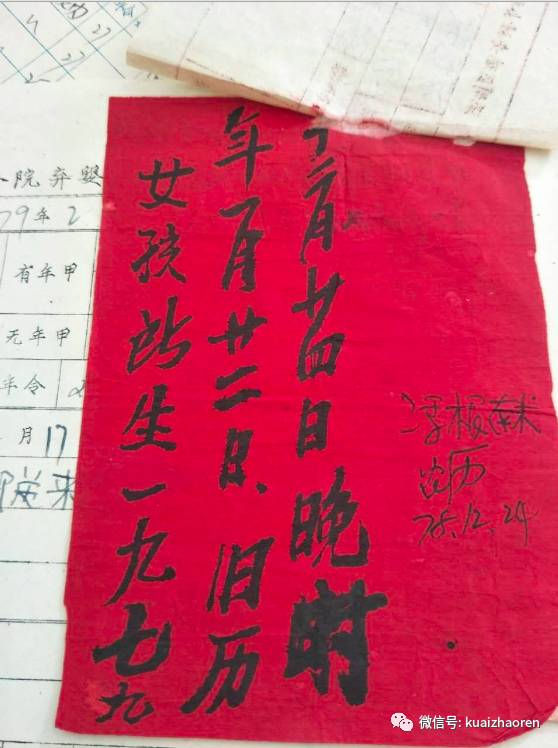 院弃婴
79年2
有年甲
无年甲
年令
月17
来
女孩所生一九七九
年一月廿二日、旧历
十二月廿四日晚时
78.12.24
微信号: kuaizhaoren